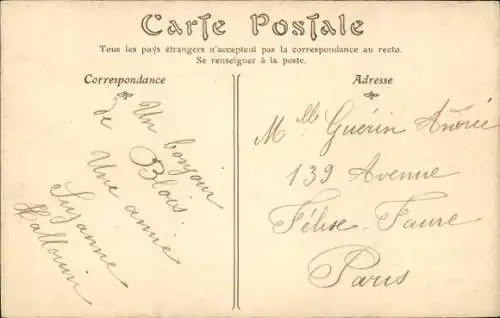 Carte Postale
Tous les pays étrangers n'acceptent pas la correspondance au recto.
Se renseigner à la poste.
Correspondance
Un bonjour
de Blois
Une amie
Suzanne
Hallouin
Adresse
Mlle Guérin Andrée
139 Avenue
Félix-Faure
Paris